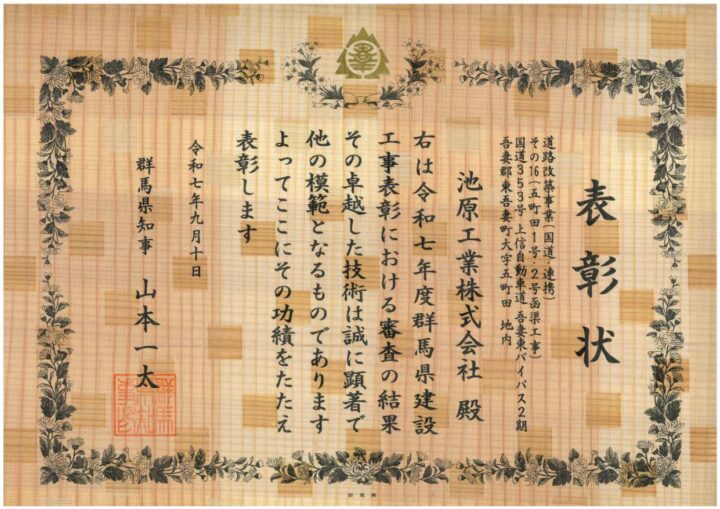 表彰状
道路改築事業(国道・連携)
その16(五町田1号・2号函渠工事)
国道353号 上信自動車道 吾妻東バイパス2期
吾妻郡東吾妻町大字五町田 地内
池原工業株式会社 殿
右は令和七年度群馬県建設
工事表彰における審査の結果
その卓越した技術は誠に顕著で
他の模範となるものであります
よってここにその功績をたたえ
表彰します
令和七年九月十日
群馬県知事 山本一太